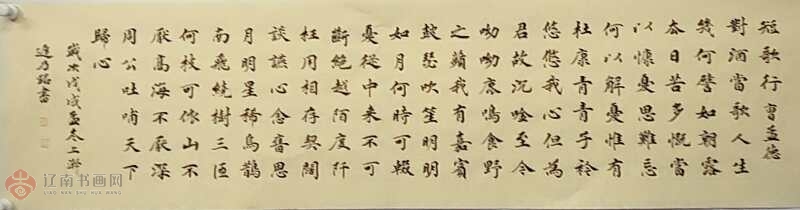 短歌行曹孟德
對酒當歌人生
幾何譬如朝露
去日苦多慨當
以慷憂思難忘
何以解憂惟有
杜康青青子衿
悠悠我心但為
君故沉吟至今
呦呦鹿鳴食野
之蘋我有嘉賓
鼓瑟吹笙明明
如月何時可輟
憂從中来不可
斷絕越陌度阡
枉用相存契闊
談讌心念舊恩
月明星稀烏鵲
南飛繞樹三匝
何枝可依山不
厭高海不厭深
周公吐哺天下
歸心
歲次戊戌孟春上澣
乃銘書
辽南书画网
LIAO NAN SHU HUA WANG